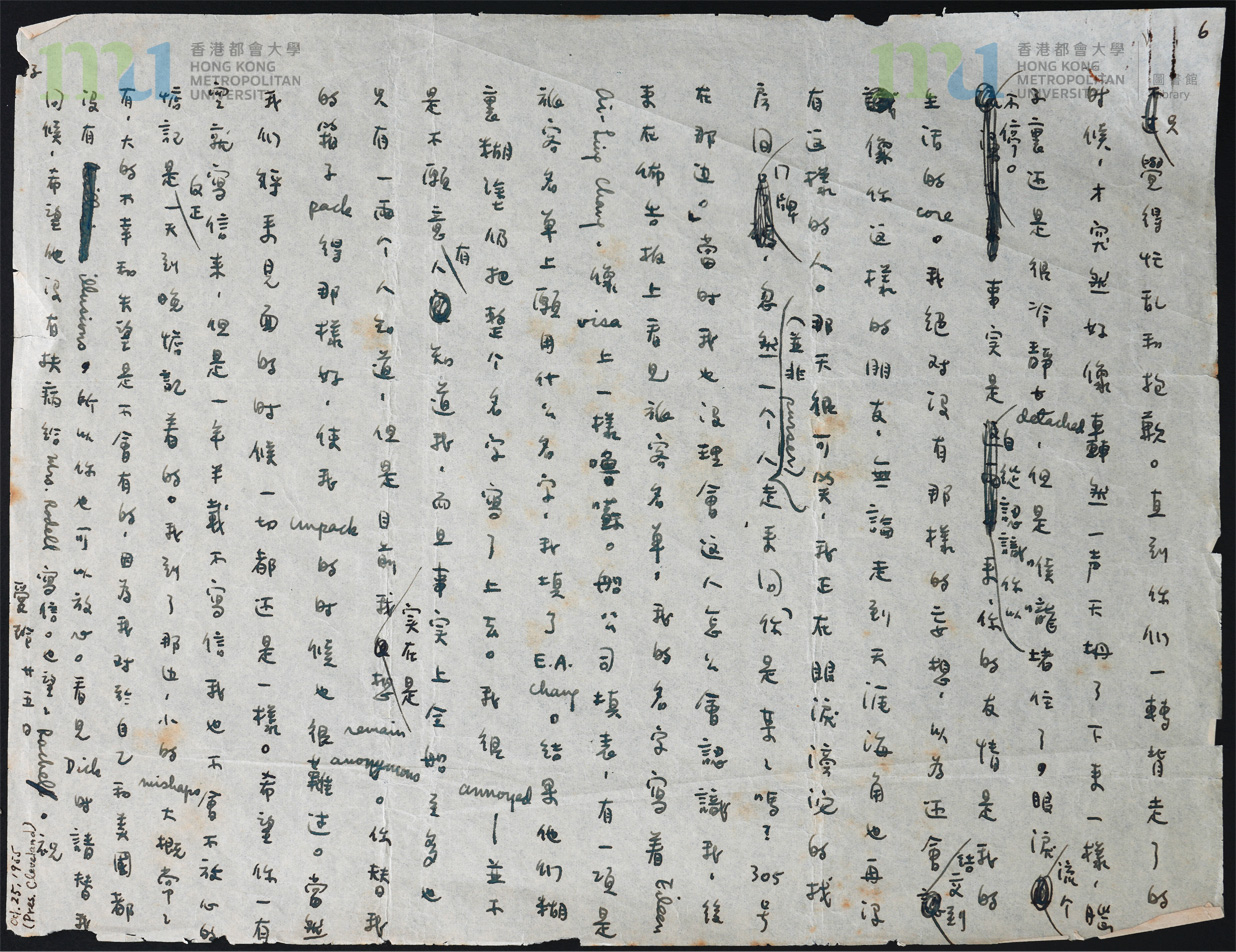 香港都會大學
HONG KONG
METROPOLITAN
UNIVERSITY
香港都會大學
HONG KONG
METROPOLITAN
UNIVERSITY
圖書館
Library
6
只覺得忙乱和抱歉。直到你们一轉背走了的
时候,才突然好像轟然一声天坍了下来一樣,腦
子裏还是很冷静 & detached,但是喉嚨堵住了,眼淚流个
不停。事实是自從認識你以来你的友情是我的
生活的core。我絕对没有那樣的妄想,以为还會結交到
像你这樣的朋友,無論走到天涯海角也再没
有这樣的人。那天很可笑,我正在眼淚滂沱的找
房间门牌,忽然一个人(並非purser)走来问「你是某〻嗎?305号
在那边。」當时我也没理會这人怎么會認識我,後
来在佈告板上看見旅客名单,我的名字寫着Eileen
Ai-Ling Chang,像visa上一樣嚕囌。船公司填表,有一項是
旅客名单上願用什么名字,我填了E.A. Chang。結果他们糊
裏糊塗仍把整个名字寫了上去。我很annoyed—並不
是不願意有人知道我,而且事实上全船至多也
只有一兩个人知道,但是目前我实在是想remain anonymous。你替我
的箱子pack得那樣好,使我unpack的时候也很難过。當然
我们將来見面的时候一切都还是一樣。希望你一有
空就寫信来,但是一年半載不寫信我也不會不放心的
惦記是反正一天到晚惦記着的。我到了那边,小的mishaps大概常〻
有,大的不幸和失望是不會有的,因为我对於自己和美國都
没有illusions,所以你也可以放心。看見Dick时請替我
问候,希望他没有扶病給Mrs. Rodell寫信。也望〻Rachel。祝
好
愛玲 廿五日
Oct. 25, 1955
(Pres. Cleveland)